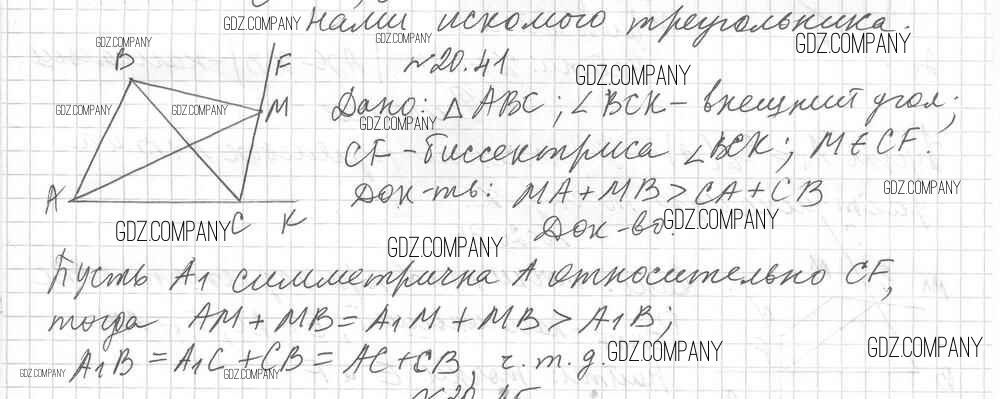 нами искомого треугольника.
GDZ.COMPANY
GDZ.COMPANY
GDZ.COMPANY
GDZ.COMPANY
B
F
№20.41
GDZ.COMPANY
M
GDZ.COMPANY
GDZ.COMPANY
Дано: △ABC; ∠BCK - внешний угол;
GDZ.COMPANY
CF - биссектриса ∠BCK; M∈CF.
A
Док-ть: MA+MB>CA+CB
GDZ.COMPANY
C
K
GDZ.COMPANY
Док-во:
GDZ.COMPANY
GDZ.COMPANY
Пусть A1 симметрична A относительно CF,
тогда AM+MB=A1M+MB>A1B;
A1B=A1C+CB=AC+CB, ч.т.д.
GDZ.COMPANY
GDZ.COMPANY
GDZ.COMPANY
GDZ.COMPANY